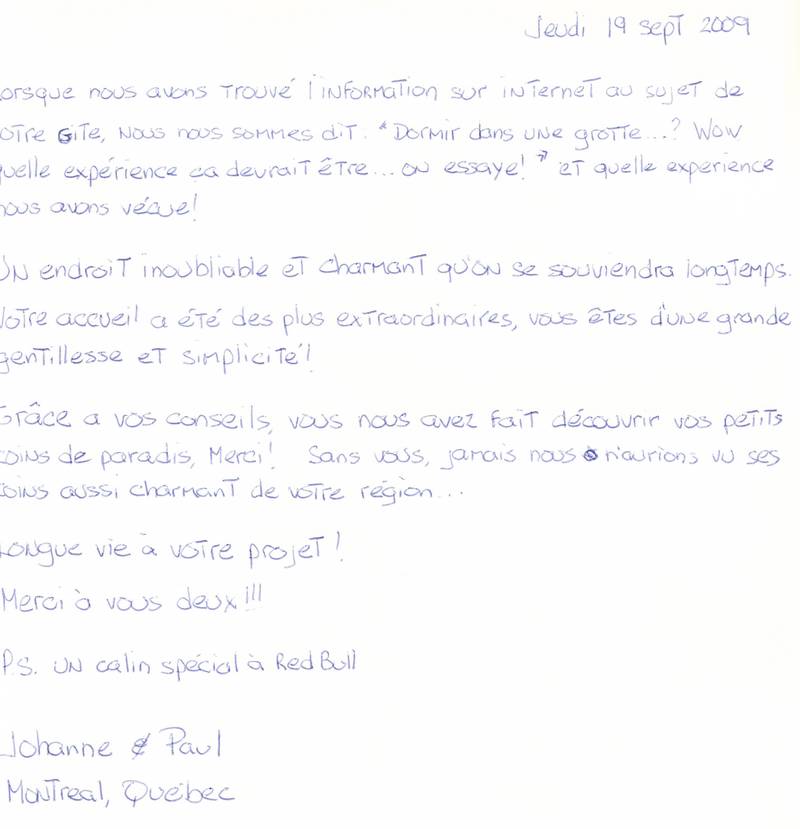 Jeudi 19 sept 2009
Lorsque nous avons trouvé l'information sur internet au sujet de
votre Gite, nous nous sommes dit. "Dormir dans une grotte...? Wow
quelle expérience ça devrait être... on essaye!" et quelle experience
nous avons vécue!
Un endroit inoubliable et charmant qu'on se souviendra longtemps.
Votre accueil a été des plus extraordinaires, vous êtes d'une grande
gentillesse et simplicité!
Grâce a vos conseils, vous nous avez fait découvrir vos petits
coins de paradis, Merci! Sans vous, jamais nous n'aurions vu ses
coins aussi charmant de votre région...
Longue vie à votre projet!
Merci à vous deux!!!
P.S. un calin spécial à Red Bull
Johanne & Paul
Montreal, Québec